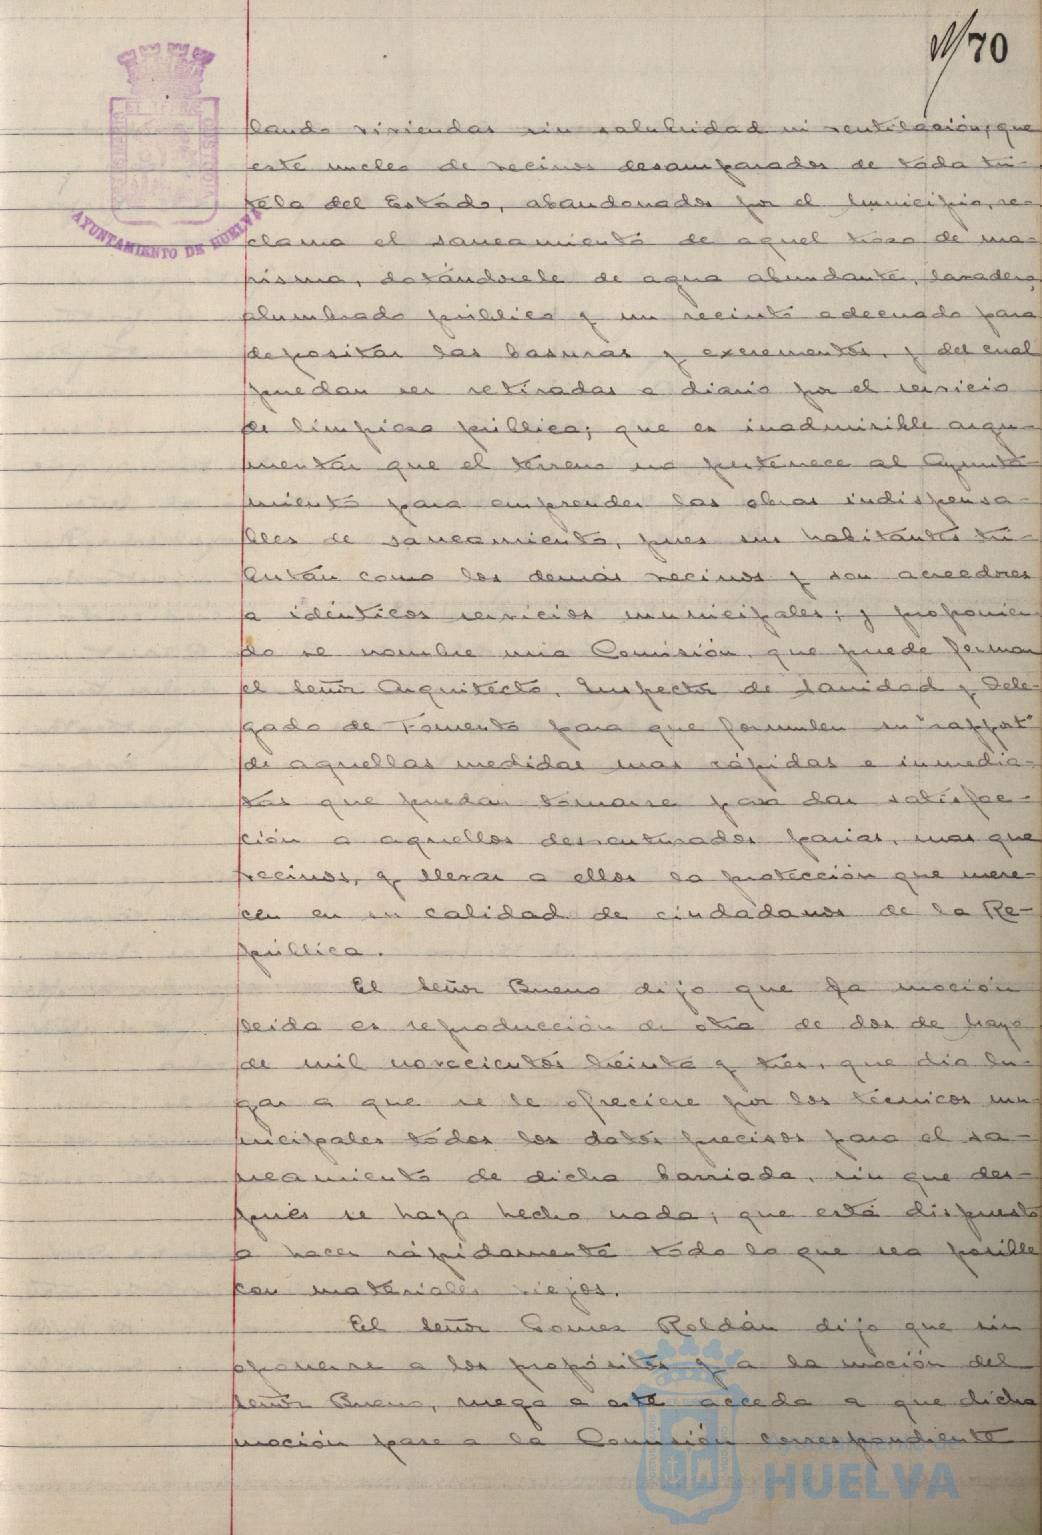 70
lando viviendas sin salubridad ni ventilación; que
este nucleo de vecinos desamparados de toda tu-
tela del Estado, abandonados por el Municipio, re-
clama el saneamiento de aquel trozo de ma-
risma, dotándosele de agua abundante, lavadero,
alumbrado público y un recinto adecuado para
depositar las basuras y excrementos, y del cual
puedan ser retiradas a diario por el servicio
de limpieza pública; que es inadmisible argu-
mentar que el terreno no pertenece al Ayunta-
miento para emprender las obras indispensa-
bles de saneamiento, pues sus habitantes tri-
butan como los demás vecinos y son acreedores
a idénticos servicios municipales; y proponien-
do se nombre una Comisión, que puede formar
el señor Arquitecto, Inspector de Sanidad y Dele-
gado de Fomento para que formulen un "rapport"
de aquellas medidas mas rápidas e inmedia-
tas que puedan tomarse para dar satisfac-
ción a aquellos desventurados parias, mas que
vecinos, y llevar a ellos la protección que mere-
cen en su calidad de ciudadanos de la Re-
pública.
El señor Bueno dijo que la moción
leida es reproducción de otra de dos de Mayo
de mil novecientos treinta y tres, que dio lu-
gar a que se le ofreciese por los técnicos mu-
nicipales todos los datos precisos para el sa-
neamiento de dicha barriada, sin que des-
pués se haya hecho nada; que está dispuesto
a hacer rápidamente todo lo que sea posible
con materiales viejos.
El señor Gomez Roldán dijo que sin
oponerse a los propósitos y a la moción del
señor Bueno, ruega a este acceda a que dicha
moción pase a la Comisión correspondiente
AYUNTAMIENTO DE HUELVA
HUELVA